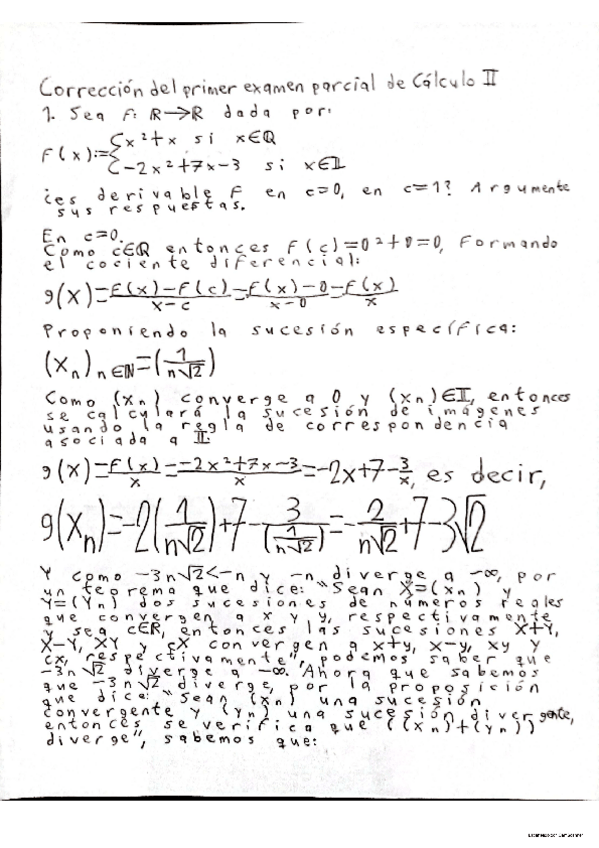 Corrección del primer examen parcial de Cálculo II
1. Sea f: ℝ→ℝ dada por:
f(x):={x²+x si x∈ℚ
-2x²+7x-3 si x∈𝕀
¿es derivable f en c=0, en c=1? Argumente
sus respuestas.
En c=0.
Como c∈ℚ entonces f(c)=0²+0=0, Formando
el cociente diferencial:
g(x)=f(x)-f(c)/x-c=f(x)-0/x-0=f(x)/x
Proponiendo la sucesión específica:
(xₙ)ₙ∈ℕ=(1/n√2)
Como (xₙ) converge a 0 y (xₙ)∈𝕀, entonces
se calculará la sucesión de imágenes
usando la regla de correspondencia
asociada a 𝕀:
g(x)=f(x)/x=-2x²+7x-3/x=-2x+7-3/x, es decir,
g(xₙ)=-2(1/n√2)+7-3/(1/n√2)=-2/n√2+7-3√2
Y como -3n√2<-n y -n diverge a -∞, por
un teorema que dice: "Sean X=(xₙ) y
Y=(yₙ) dos sucesiones de números reales
que convergen a x y y, respectivamente
y sea c∈ℝ, entonces las sucesiones X+Y,
X-Y, XY y cX convergen a x+y, x-y, xy y
cx, respectivamente", podemos saber que
-3n√2 diverge a -∞. Ahora que sabemos
que -3n√2 diverge, por la proposición
que dice: "Sean (xₙ) una sucesión
convergente y (yₙ) una sucesión divergente,
entonces se verifica que ((xₙ)+(yₙ))
diverge", sabemos que: